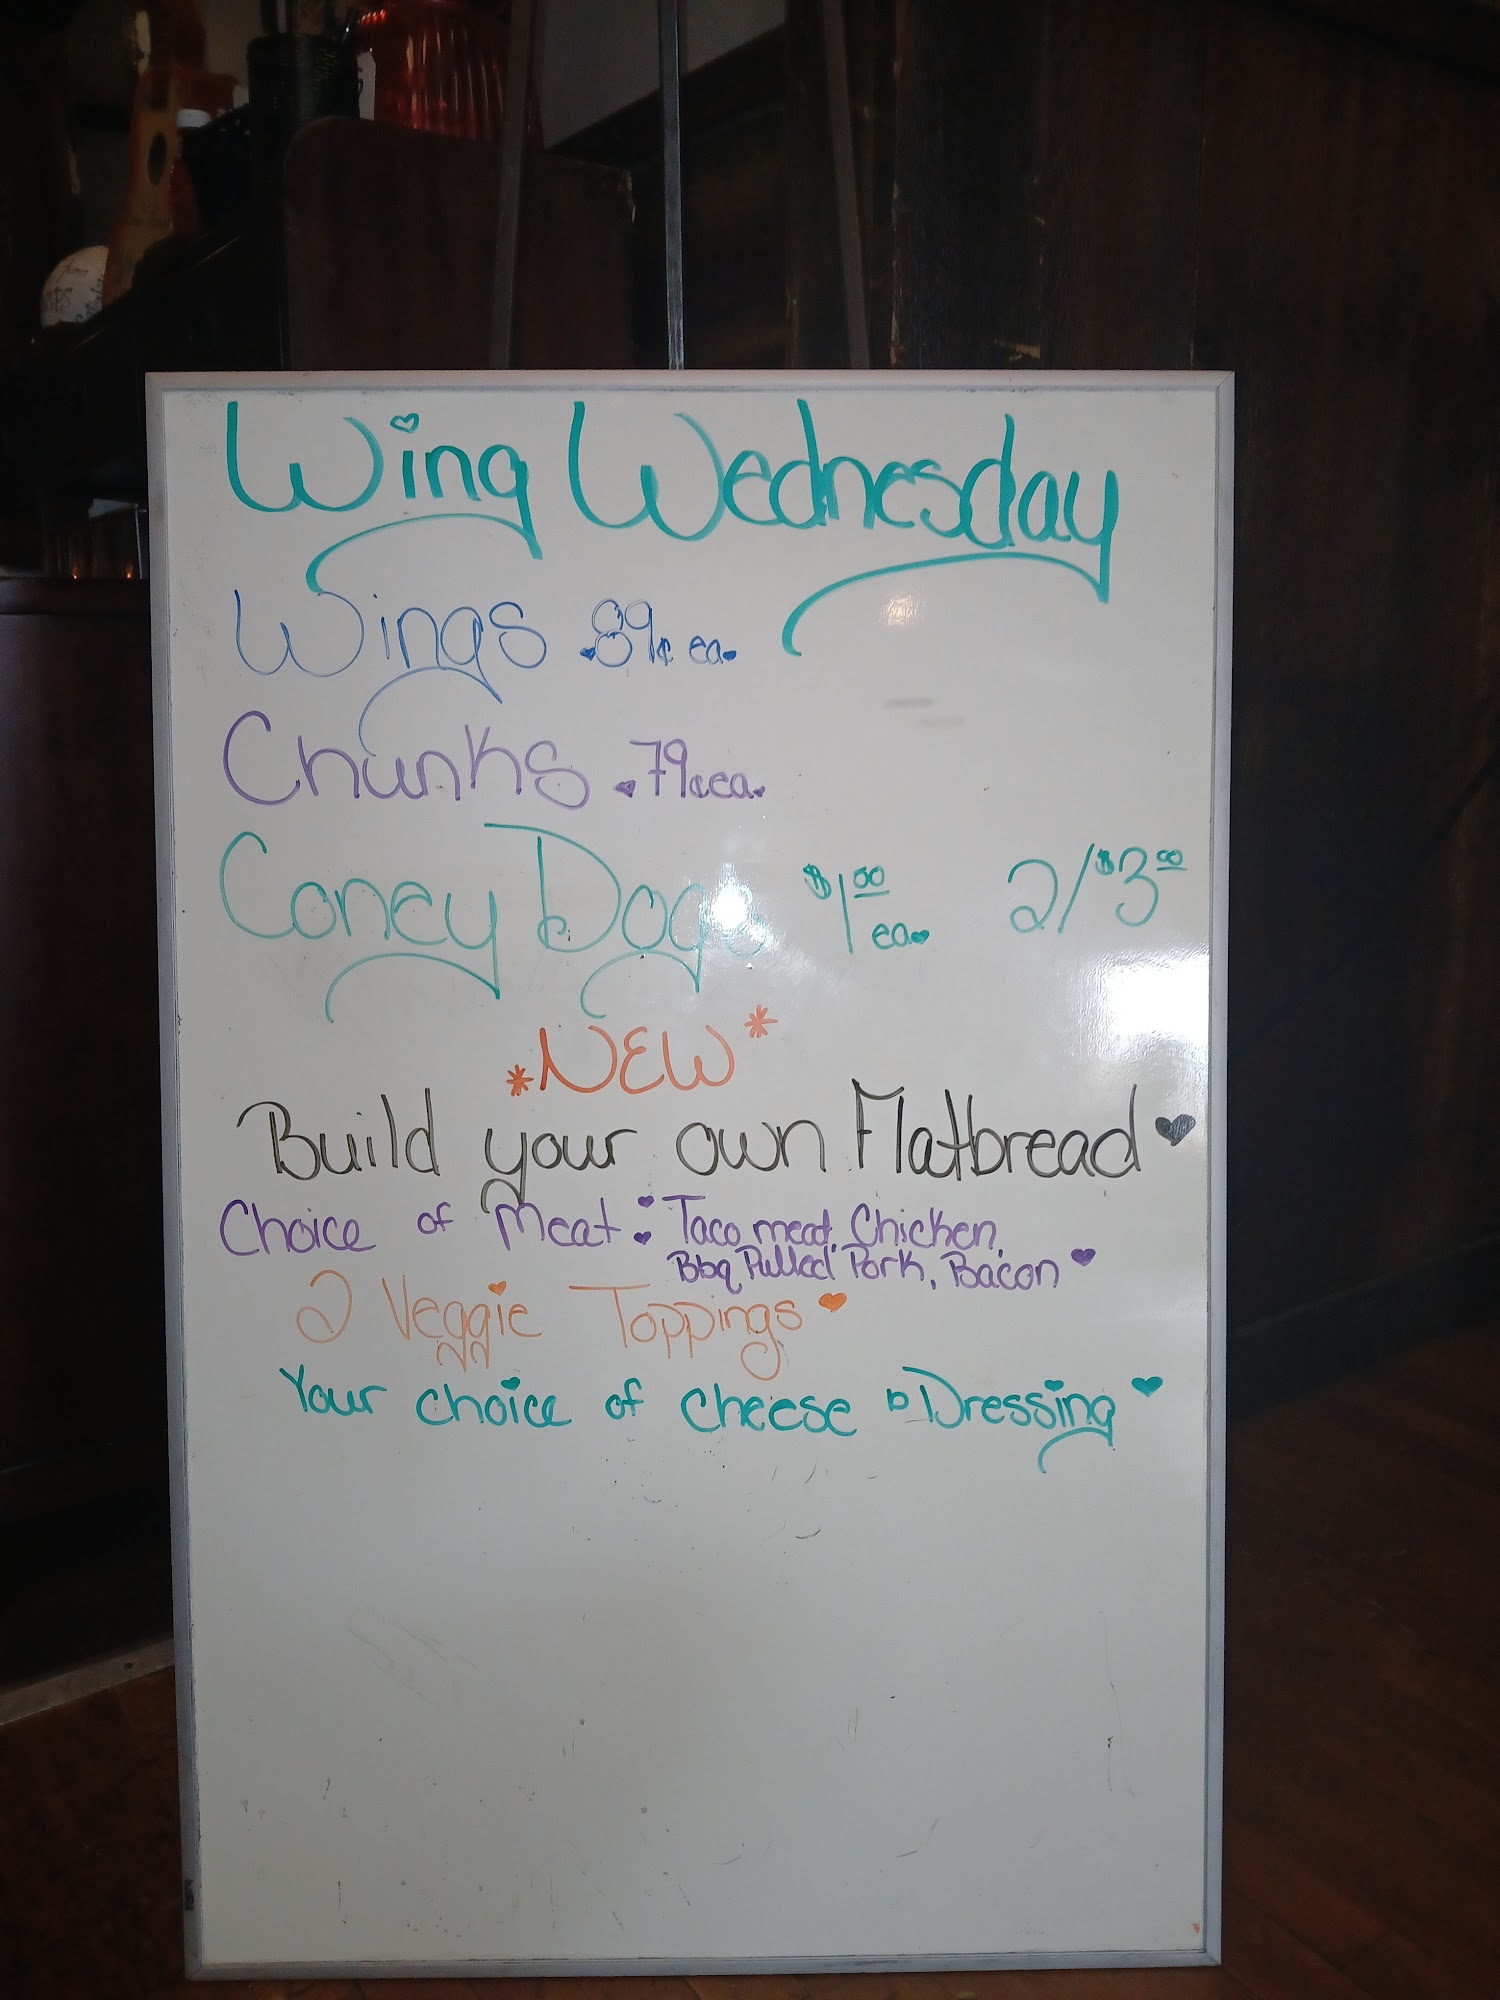 Wing Wednesday
Wings .89¢ ea.
Chunks .79¢ ea.
Coney Dogs $1.00 ea. 2/$3.00
*NEW*
Build your own Flatbread
Choice of Meat: Taco meat, Chicken,
Bbq Pulled Pork, Bacon
2 Veggie Toppings
Your choice of cheese & Dressing